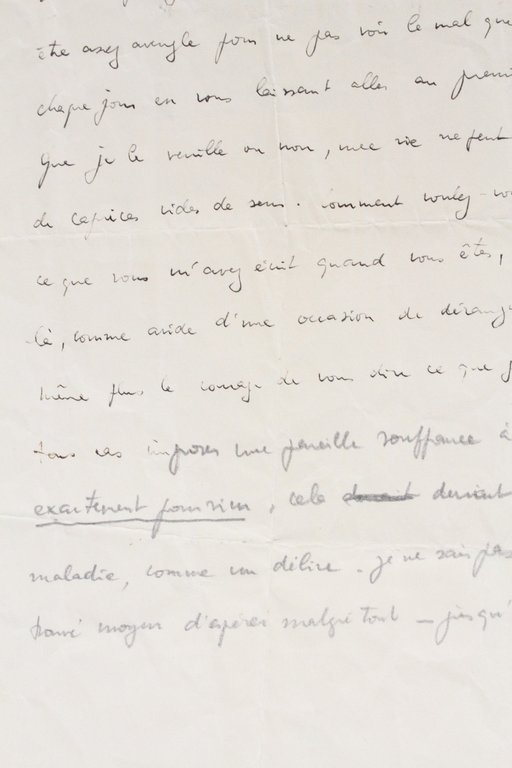 être assez aveugle pour ne pas voir le mal que
chaque jour en vous laissant aller au premi
Que je le veuille ou non, une vie ne peut
de caprices vides de sens. Comment voulez-vo
ce que vous m'avez écrit quand vous êtes,
là, comme avide d'une occasion de dérang
même plus le courage de vous dire ce que j
tous cas imposer une pareille souffrance à
exactement pour rien, cela devient
maladie, comme un délire. Je ne sais pas
trouvé moyen d'espérer malgré tout – jusqu'